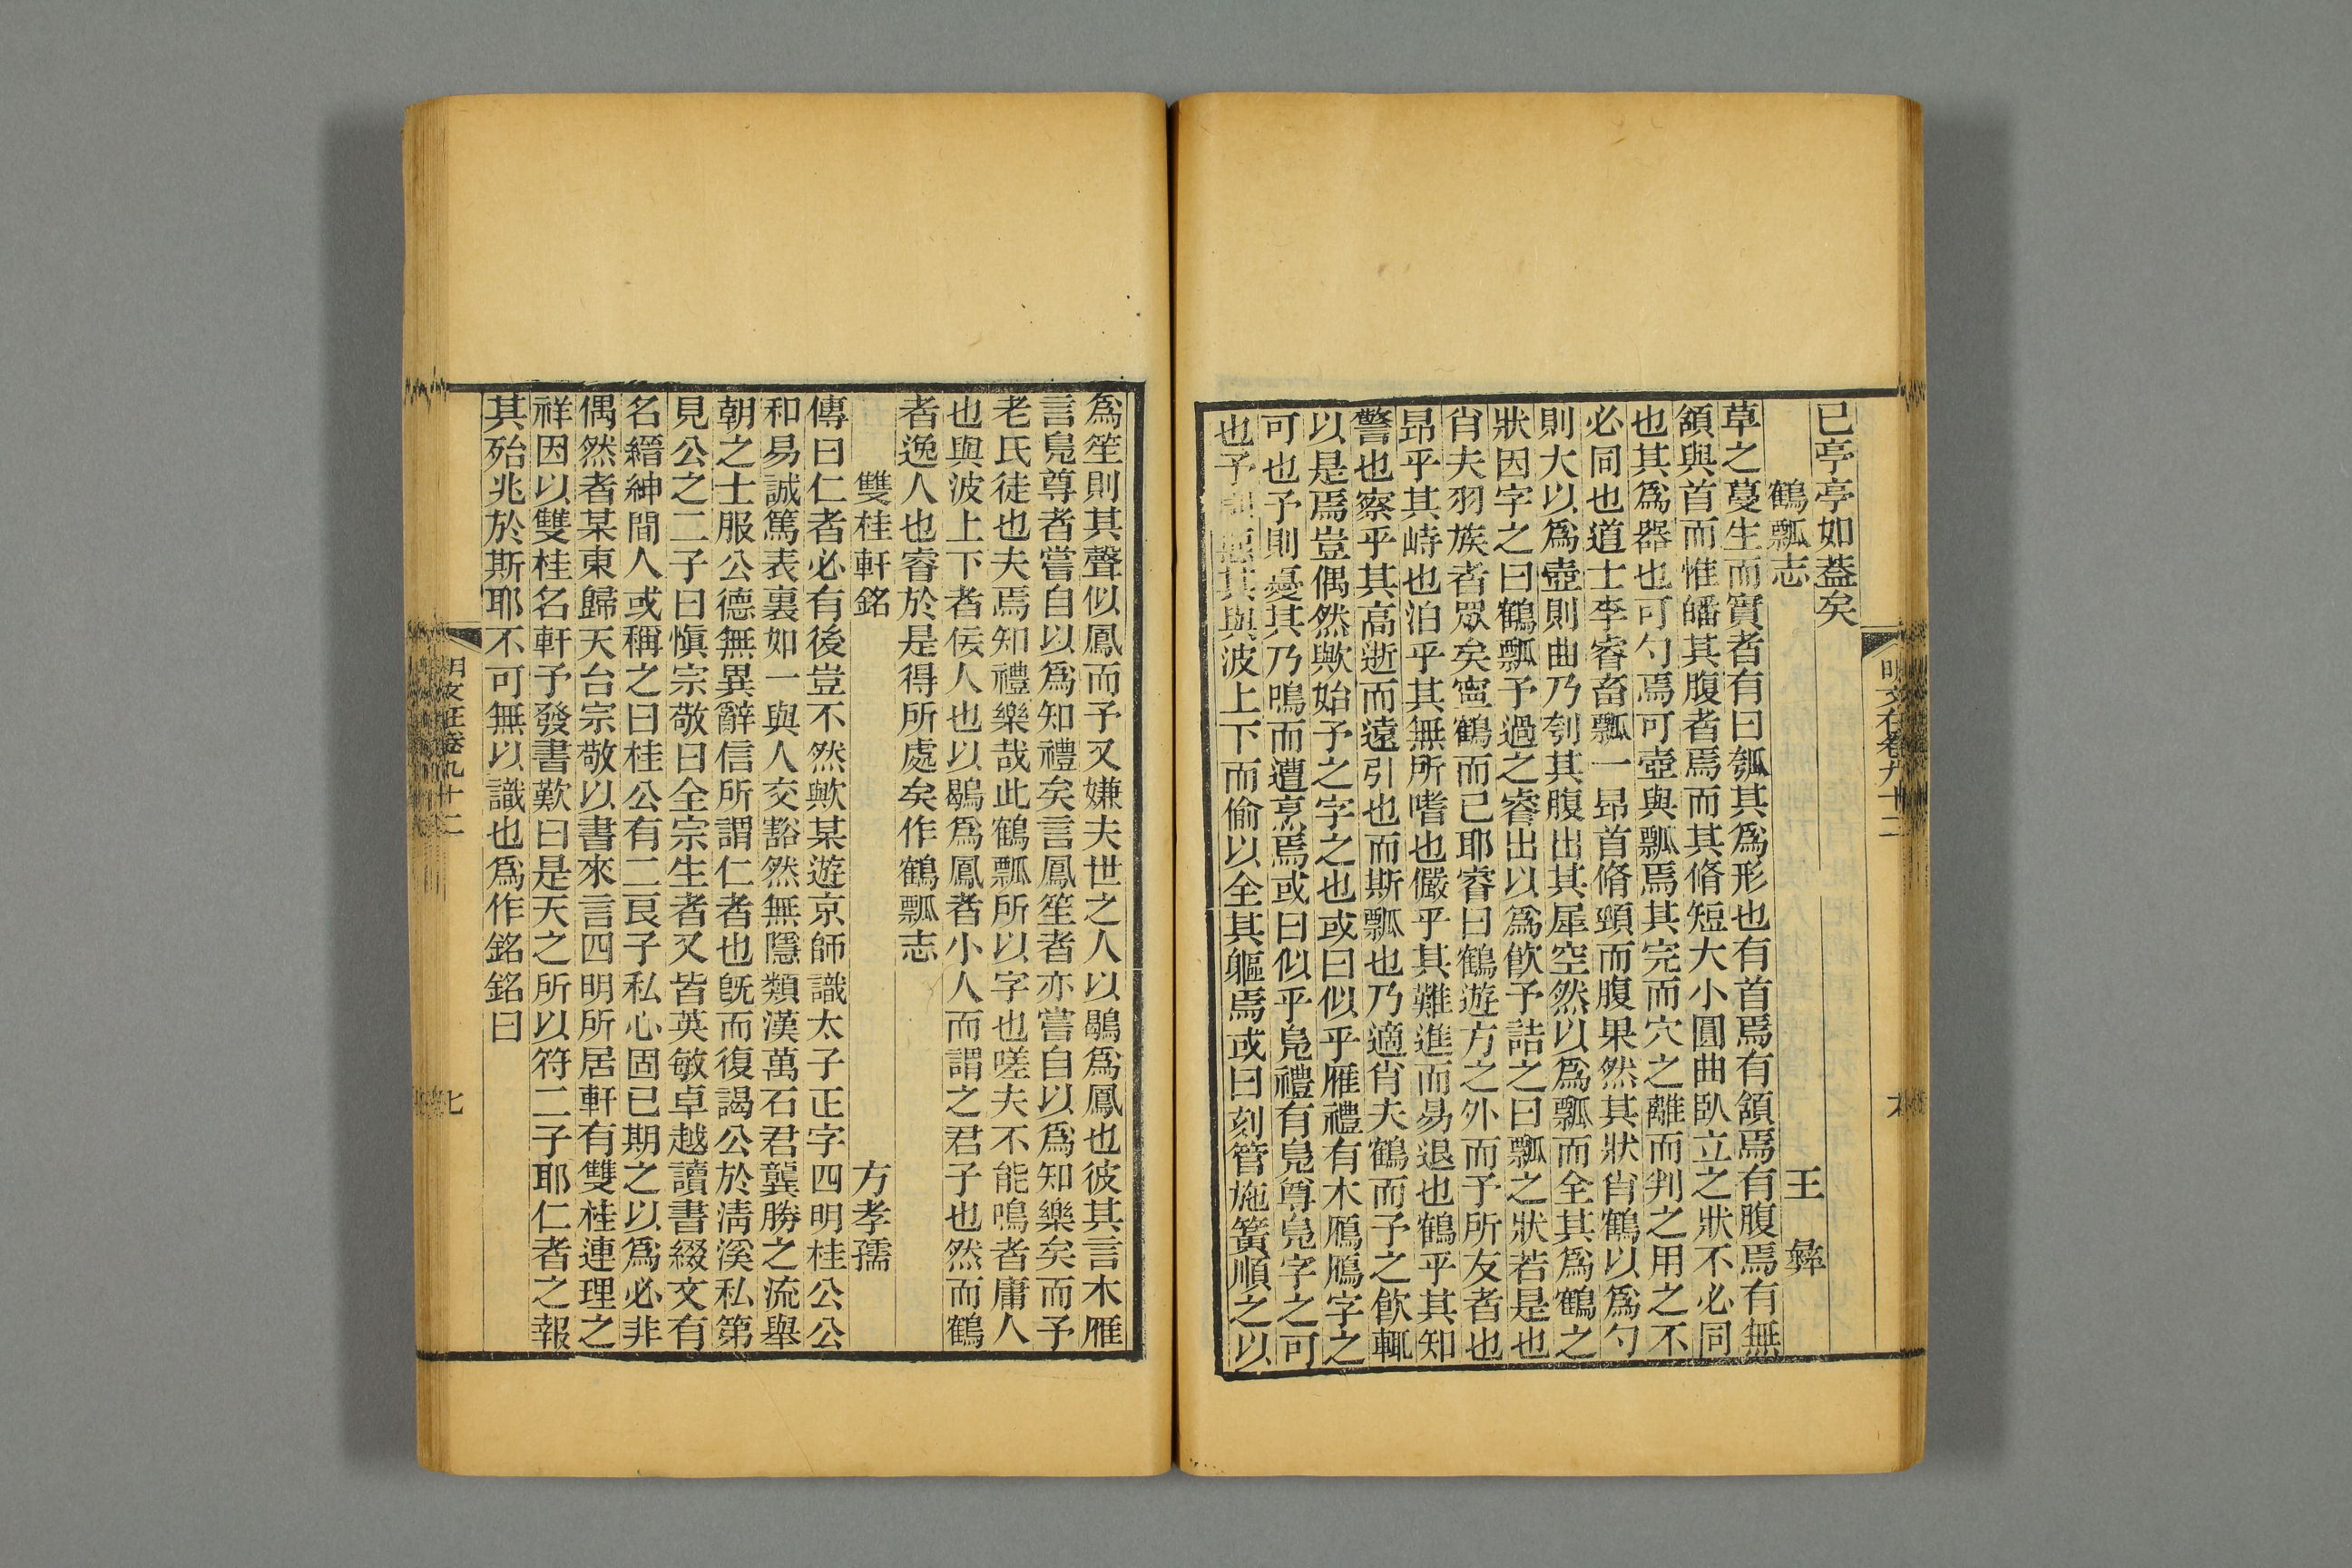 明文在卷九十二
已亭亭如葢矣
鶴瓢志 王彝
草之蔓生而實者有曰瓠其爲形也有首焉有頷焉有腹焉有無
頷與首而惟皤其腹者焉而其脩短大小圓曲臥立之狀不必同
也其爲器也可勺焉可壺與瓢焉其完而穴之離而判之用之不
必同也道士李睿畜瓢一昂首脩頸而腹果然其狀肖鶴以爲勺
則大以爲壺則曲乃刳其腹出其犀空然以爲瓢而全其爲鶴之
狀因字之曰鶴瓢予過之睿出以爲飮予詰之曰瓢之狀若是也
肖夫羽族者眾矣寍鶴而已耶睿曰鶴遊方之外而予所友者也
昂乎其峙也泊乎其無所嗜也儼乎其難進而易退也鶴乎其知
警也察乎其高逝而遠引也而斯瓢也乃適肖夫鶴而予之飮輒
以是焉豈偶然歟始予之字之也或曰似乎雁禮有木鴈鴈字之
可也予則憂其乃鳴而遭烹焉或曰似乎鳧禮有鳧尊鳧字之可
也予則惡其與波上下而偷以全其軀焉或曰刻管施簧順之以
爲笙則其聲似鳳而予又嫌夫世之人以鶡爲鳳也彼其言木雁
言鳧尊者嘗自以爲知禮矣言鳳笙者亦嘗自以爲知樂矣而予
老氏徒也夫焉知禮樂哉此鶴瓢所以字也嗟夫不能鳴者庸人
也與波上下者佞人也以鶡爲鳳者小人而謂之君子也然而鶴
者逸人也睿於是得所處矣作鶴瓢志
雙桂軒銘 方孝孺
傳曰仁者必有後豈不然歟某遊京師識太子正字四明桂公公
和易誠篤表裏如一與人交豁然無隱類漢萬石君龔勝之流舉
朝之士服公德無異辭信所謂仁者也旣而復謁公於淸溪私第
見公之二子曰愼宗敬曰全宗生者又皆英敏卓越讀書綴文有
名縉紳間人或稱之曰桂公有二良子私心固已期之以爲必非
偶然者某東歸天台宗敬以書來言四明所居軒有雙桂連理之
祥因以雙桂名軒予發書歎曰是天之所以符二子耶仁者之報
其殆兆於斯耶不可無以識也爲作銘銘曰
明文在卷九十二
七